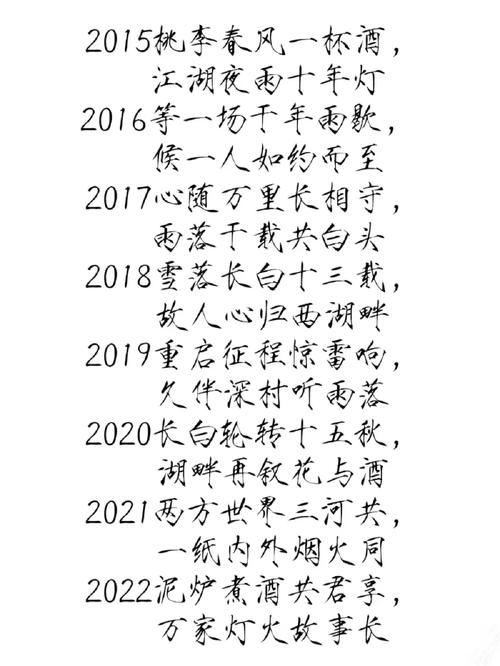 2015桃李春风一杯酒，
江湖夜雨十年灯
2016等一场千年雨歇，
候一人如约而至
2017心随万里长相守，
雨落千载共白头
2018雪落长白十三载，
故人心归西湖畔
2019重启征程惊雷响，
久伴深村听雨落
2020长白轮转十五秋，
湖畔再叙花与酒
2021两方世界三河共，
一纸内外烟火同
2022泥炉煮酒共君享，
万家灯火故事长